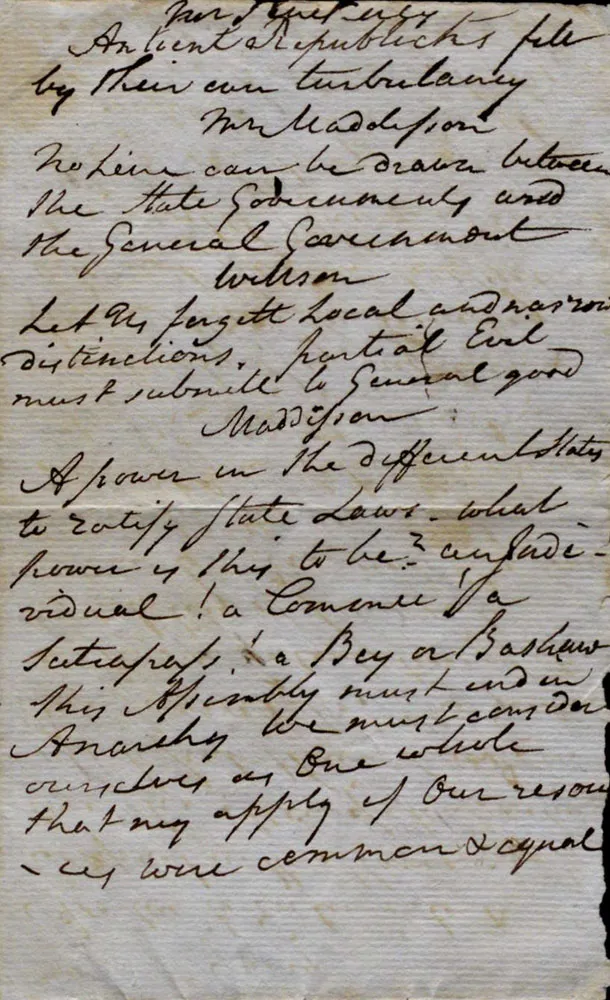 Mr
Antient Republicks fell
by their own turbulancy
Mr Maddisson
No Line can be drawn between
the State Governments and
the General Government
Willson
Let Us forgett Local and narrow
distinctions. partial Evil
must submitt to General good
Maddisson
A power in the different States
to ratify State Laws - what
power is this to be? an Indi-
vidual! a Committee! a
! a Bey or Bashaw
this Assimbly must end in
Anarchy We must consider
ourselves as One whole
that my apply if Our resour
-ces were common & equal